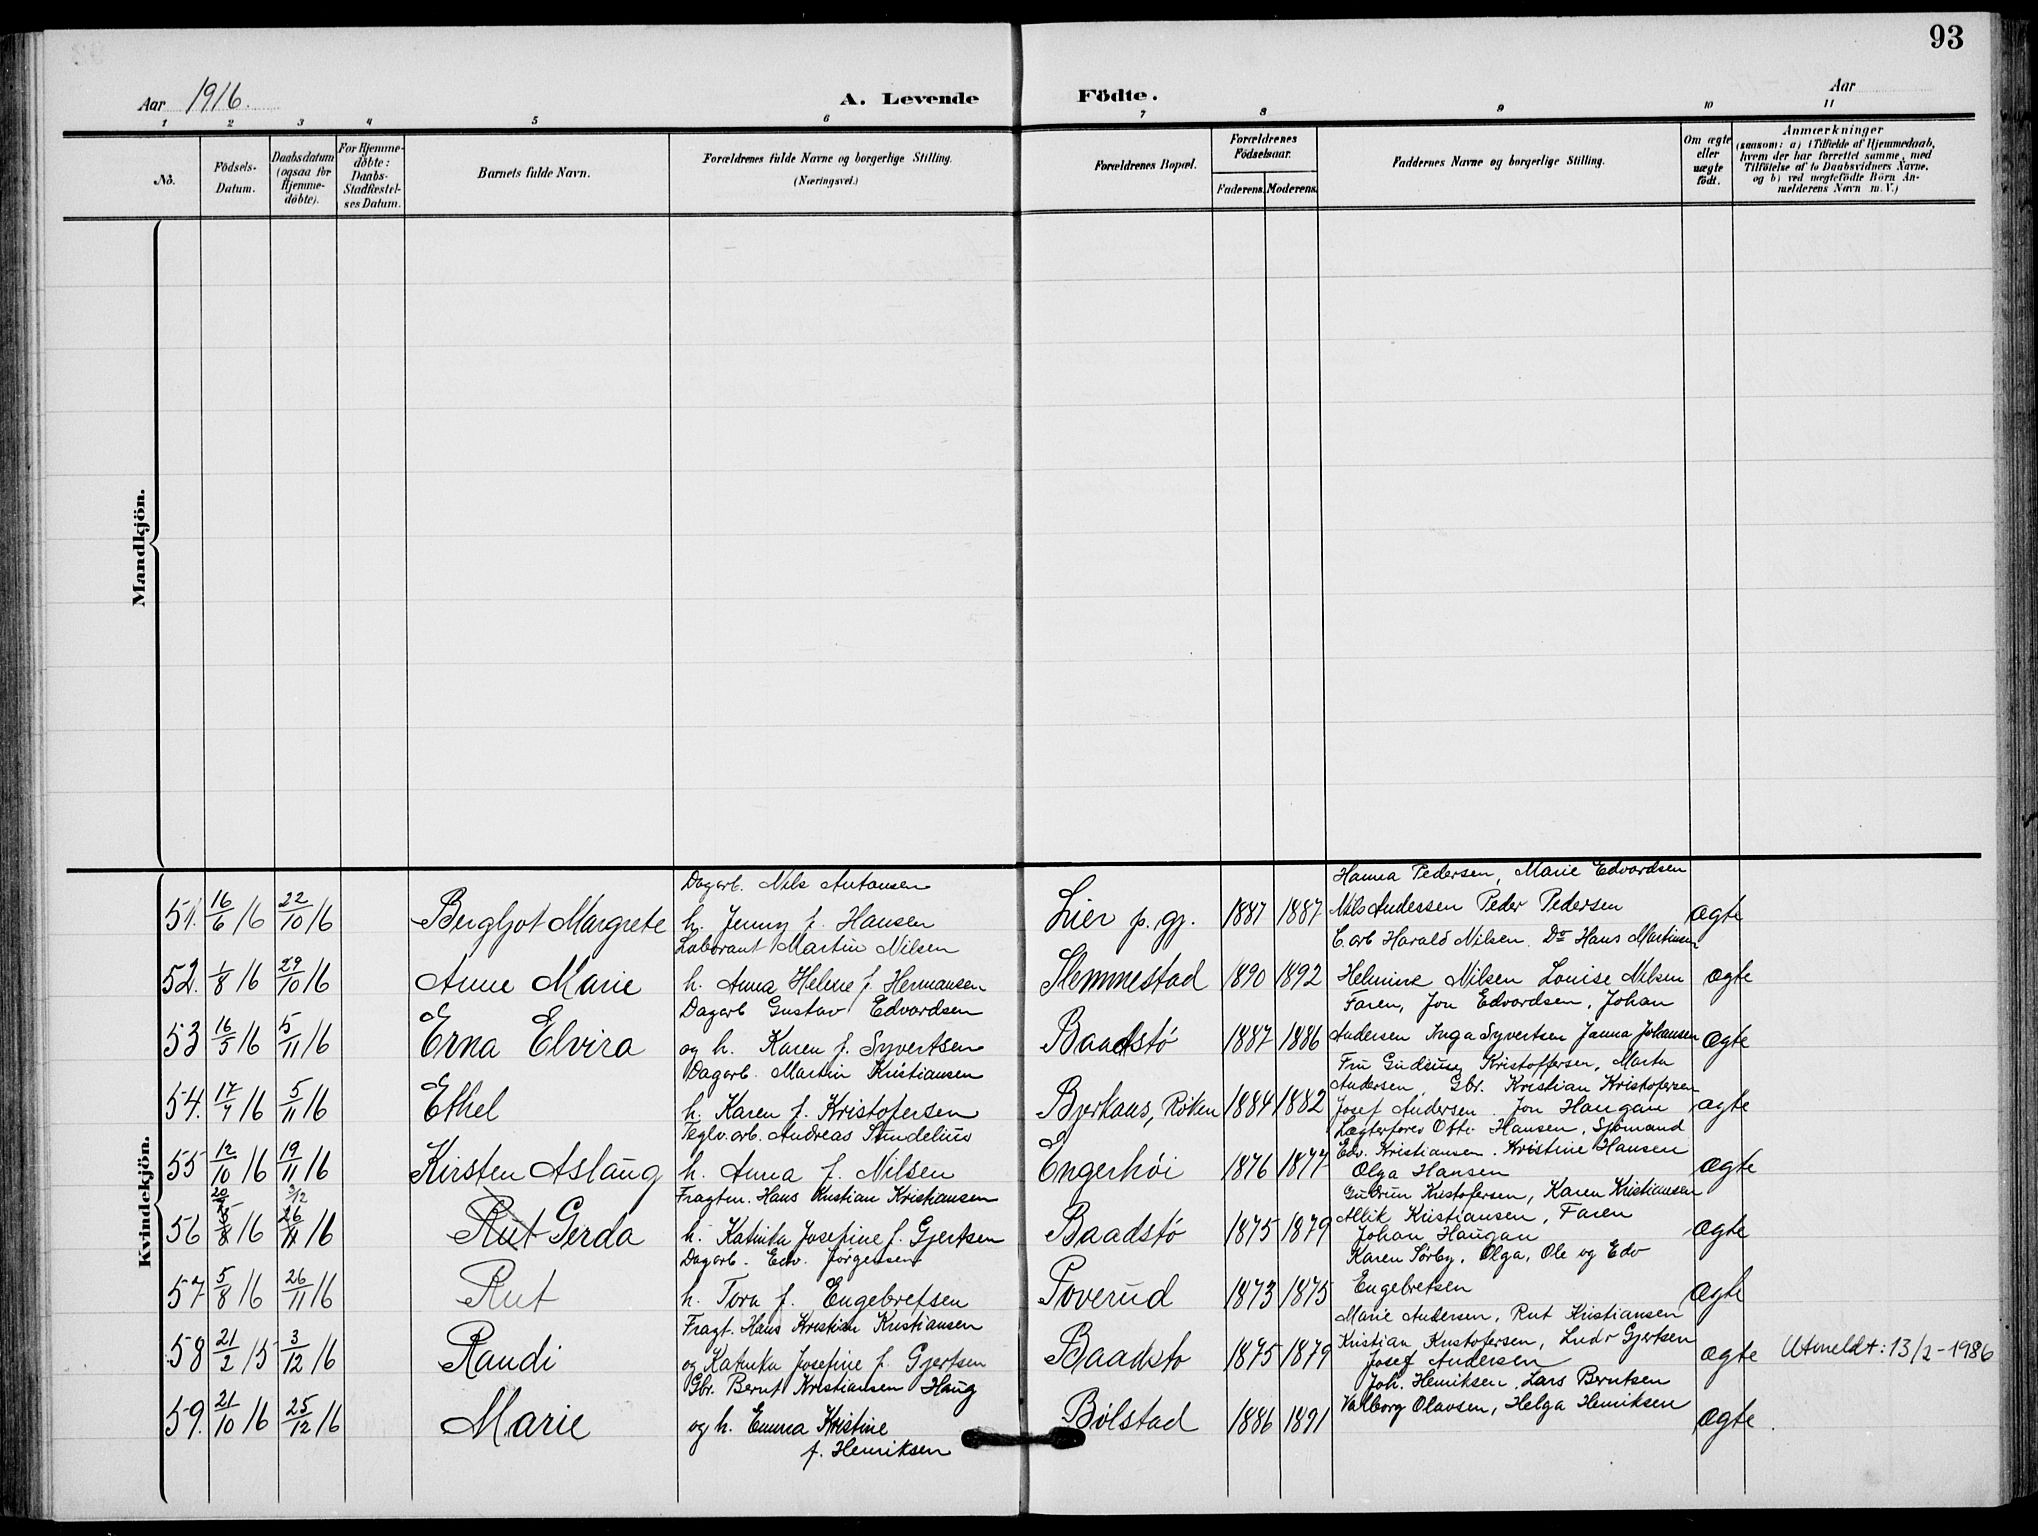 93
Aar 1916.
A. Levende Födte.
Aar
1 2 3 4 5 6 7 8 9 10 11
No.
Födsels-Datum.
Daabsdatum (ogsaa for Hjemme-döbte).
For Hjemme-döbte: Daabs-Stadfæstel-ses Datum.
Barnets fulde Navn.
Forældrenes fulde Navne og borgerlige Stilling.
(Næringsvei.)
Forældrenes Bopæl.
Forældrenes Födselsaar.
Faderens. Moderens.
Faddernes Navne og borgerlige Stilling.
Om ægte eller uægte født.
Anmærkninger
(saasom: a) i Tilfælde af Hjemmedaab,
hvem der har forrettet samme, med
Tilföielse af to Daabsvidners Navne,
og b) ved uægtefödte Börn An-
melderens Navn m. V.)
Mandkjön.
Kvindekjön.
Dagarb. Nils Antonsen
Hanna Pedersen, Marie Edvardsen
51. 16/6 16 22/10 16 Bergljot Margrete h. Jenny f. Hansen Lier p. gj. 1887 1887 Nils Anderssen Peder Pedersen ægte
Laborant Martin Nilsen
C. arb Harald Nilsen. Do Hans Martinsen
52. 1/8 16 29/10 16 Anne Marie h. Anna Helene f. Hermansen Slemmestad 1890 1892 Helmine Nilsen Louise Nilsen ægte
Dagarb Gustav Edvardsen
Faren, Jon Edvardsen, Johan
53 16/5 16 5/11 16 Erna Elvira og h. Karen f. Syvertsen Baadstø 1887 1886 Andersen Inga Syvertsen Janna Johansen ægte
Dagarb. Martin Kristiansen
Fru Gudrun Kristoffersen, Marta
Andersen, Gbr. Kristian Kristofersen
54. 17/7 16 5/11 16 Ethel h. Karen f. Kristofersen Bjerkaas, Røken 1884 1882 Josef Andersen. Jon Haugan ægte
Teglv. arb. Andreas Sundelius
Lægterforer Otto Hansen, Sjømand
55 12/10 16 19/11 16 Kirsten Aslaug h. Anna f. Nilsen Engerhøi 1876 1877 Edv. Kristiansen. Kristine Hansen ægte
Olga Hansen
Fragtm. Hans Kristian Kristiansen
Gudrun Kristofersen, Karen Kristiansen
56 5/8 16 26/11 16 3/12 Rut Gerda h. Katinka Josefine f. Gjertsen Baadstø 1875 1879 Kristiansen, Faren ægte
Johan Haugan
Dagarb. Edv. Jørgensen
Karen Sørby, Olga, Ole og Edv
57 5/8 16 26/11 16 Rut h. Tora f. Engebretsen Poverud 1873 1875 Engebretsen ægte
Fragt. Hans Kristian Kristiansen
Marie Andersen, Rut Kristiansen
58 21/2 15 3/12 16 Randi og Katinka Josefine f. Gjertsen Baadstø 1875 1879 Kristian Kristofersen, Ludv Gjertsen ægte Utmeldt: 13/2-1986
Josef Andersen
Gbr. Bernt Kristiansen Haug
Joh. Henriksen, Lars Berntsen
59. 21/10 16 25/12 16 Marie og h. Emma Kristine Bølstad 1886 1891 Valborg Olavsen, Helga Henriksen ægte
f. Henriksen